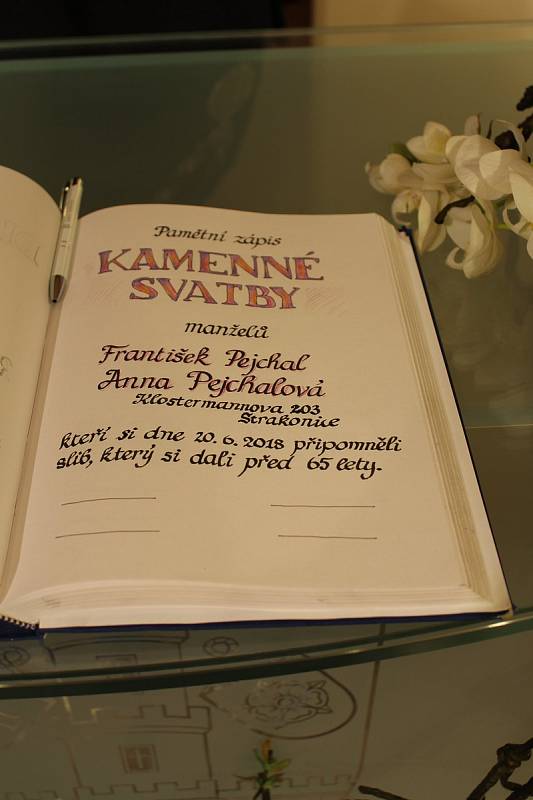 Pamětní zápis
KAMENNÉ
SVATBY
manželů
František Pejchal
Anna Pejchalová
Klostermannova 203
Strakonice
kteří si dne 20. 6. 2018 připomněli
slib, který si dali před 65 lety.